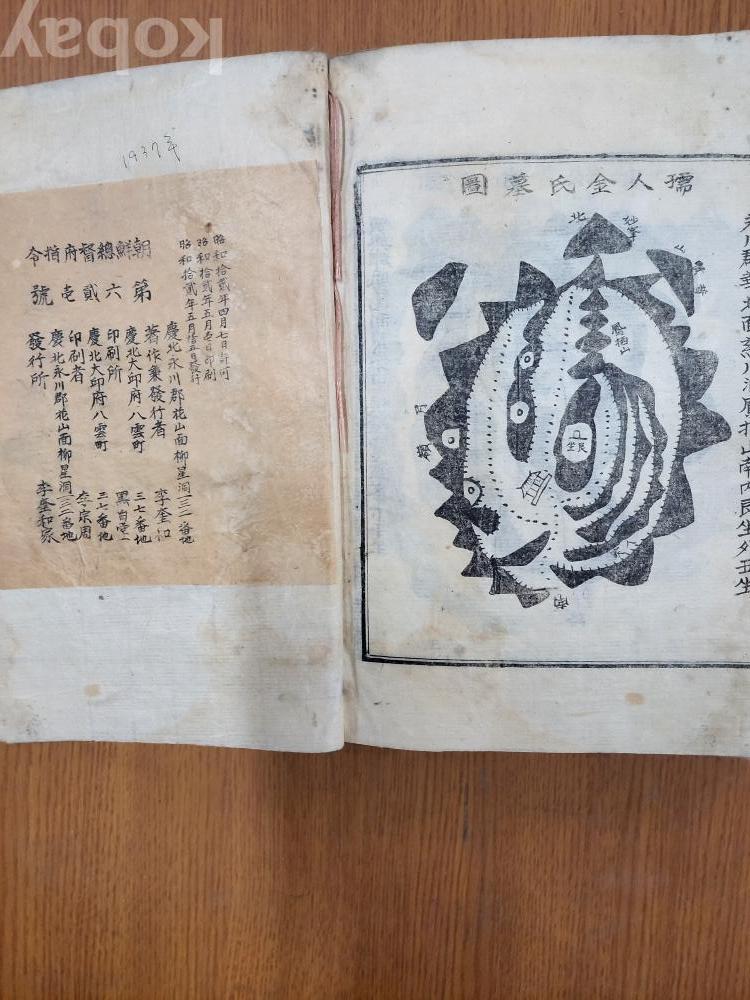 kobay
1937年
昭和拾貳年四月七日許可
昭和拾貳年五月壱日印刷
昭和拾貳年五月拾五日發行
朝鮮總督府指令
第六貳壱號
慶北永川郡花山面柳星洞一三二番地
著作兼發行者 李奎和
慶北大邱府八雲町 三七番地
印刷所
慶北大邱府八雲町 三七番地
印刷者 李宗周
慶北永川郡花山面柳星洞一三二番地
發行所 李奎和家
孺人金氏墓圖
北
鳳栖山
艮坐
南